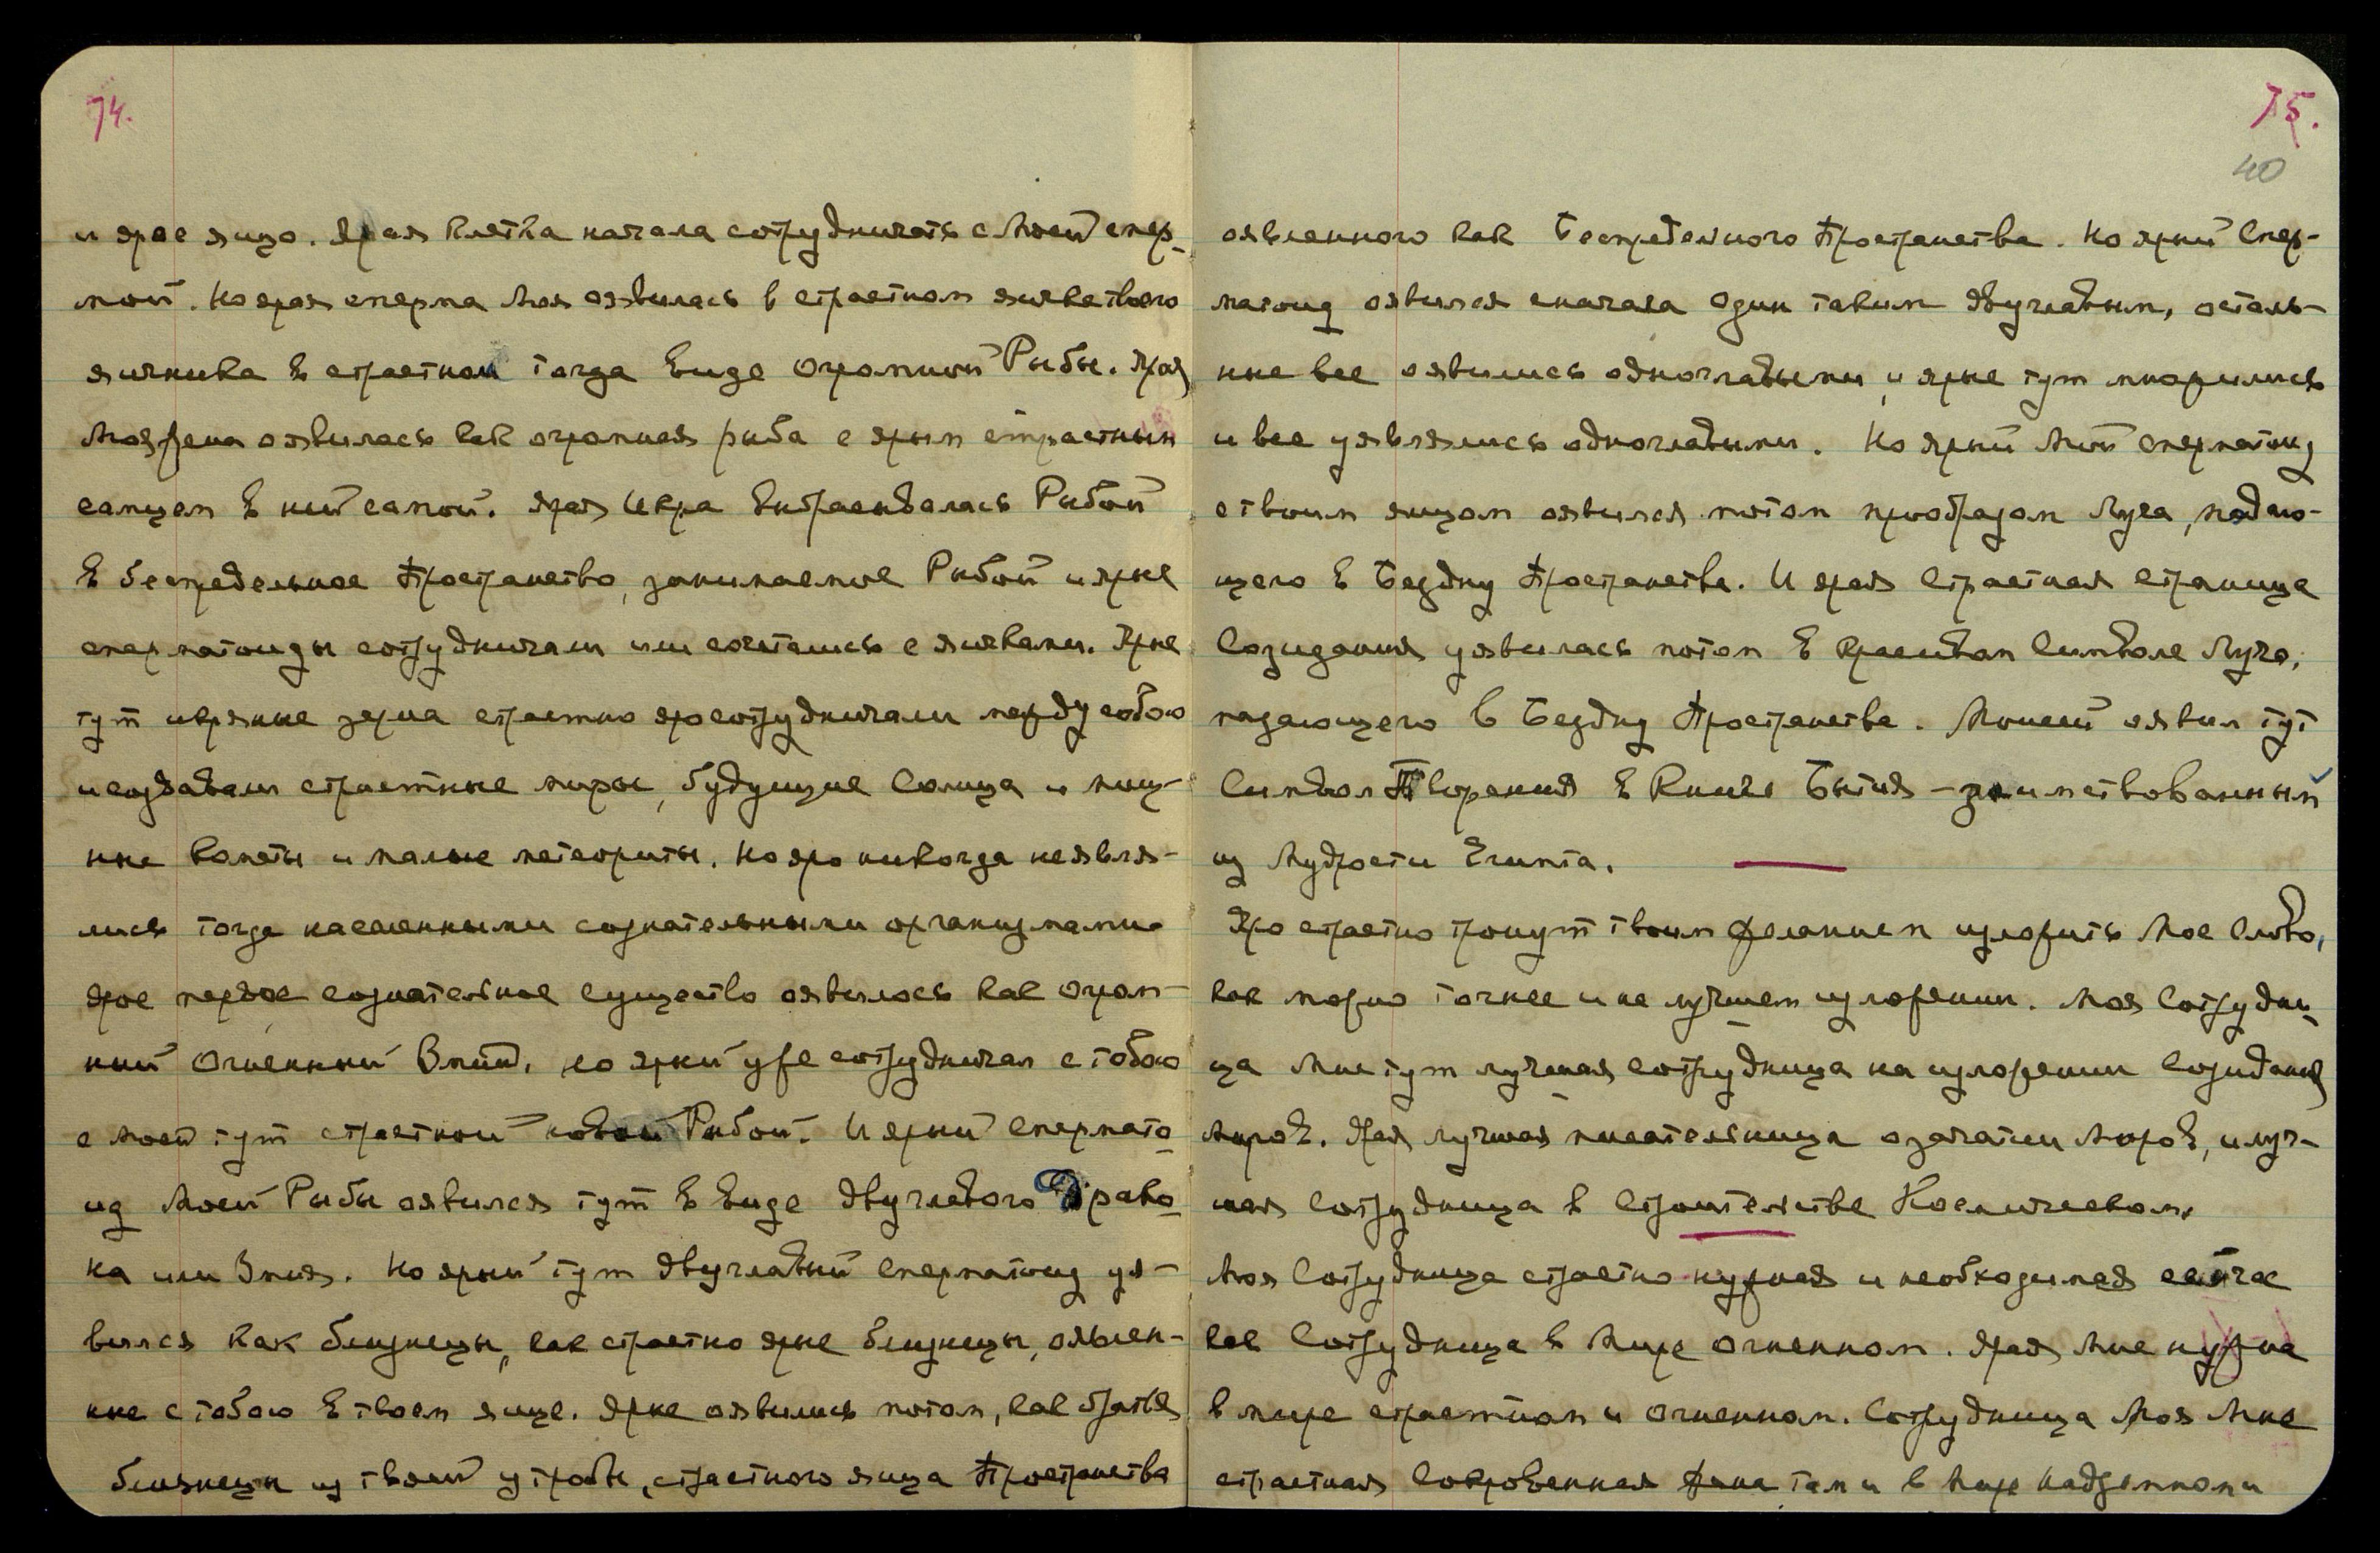 74.
и ярое яицо. Ярая клетка начала сотрудничать с Моей спер-
мой. Но ярая сперма Моя оявилась в страстном яичке твоего
яичника в страстном тогда виде Огромной Рыбы. Ярая
Моя Жена оявилась как огромная рыба с ярым страстным
самцем в ней самой. Ярая Икра выбрасывалась Рыбой
в беспредельное Пространство, занимаемое Рыбой и ярые
сперматоиды сотрудничали или сочетались с яичками. Ярые
тут икряные зерна страстно яро сотрудничали между собою
и создавали страстные миры, будущие Солнца и мощ-
ные кометы и малые метеориты. Но яро никогда не явля-
лись тогда населенными сознательными организмами.
Ярое первое сознательное существо оявилось как огром-
ный Огненный Змий, но ярый уже сотрудничал с тобою
с моей тут страстной новой Рыбой. И ярый Спермато-
ид Моей Рыбы оявился тут в виде двуглавого Драко-
на или Змия. Но ярый тут двуглавый сперматоид уя-
вился как близнецы, как страстно ярые близнецы, оявлен-
ные с тобою в твоем яице. Ярые оявились потом, как братья
близнецы из твоей утробы, страстного яица Пространства
75.
40
оявленного как Беспредельного Пространства. Но ярый Спер-
матоид оявился сначала один таким двуглавым, осталь-
ные все оявились одноглавыми, и ярые тут множились
и все уявлялись одноглавыми. Но ярый Мой сперматоид
с твоим яицом оявился потом прообразом Луча, падаю-
щего в Бездну Пространства. И ярая Страстная Страница
Созидания уявилась потом в красивом Символе Луча,
падающего в Бездну Пространства. Моисей оявил тут
Символ Творения в Книге Бытия – заимствованный
из Мудрости Египта.
Яро страстно тронут твоим желанием изложить Мое Слово,
как можно точнее и не лучшем изложении. Моя Сотрудни-
ца Мне тут лучшая сотрудница на изложении Созидания
Миров. Ярая лучшая писательница о зачатии Миров, и луч-
шая Сотрудница в Строительстве Космическом.
Моя Сотрудница страстно нужная и необходимая сейчас
как Сотрудница в Мире Огненном. Ярая Мне нужна
в мире страстном и Огненном. Сотрудница Моя Мне
страстная Сокровенная Жена там и в Мире Надземном и